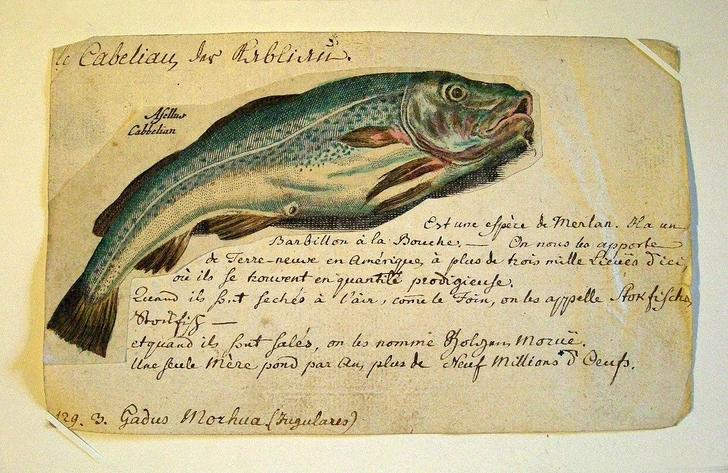 le Cabeliau, der Kabliau.
Asellus
Cabbelian
Est une espèce de Merlan. Il a un
Barbillon à la Bouche. — On nous les apporte
de Terre-neuve en Amérique, à plus de trois mille Lieuës d'ici,
où ils se trouvent en quantité prodigieuse.
Quand ils sont sechés à l'air, come le Foin, on les appelle Stokfischs,
Stokfisch —
et quand ils sont salés, on les nomme Moruë.
Une seule Mère pond par An, plus de Neuf Millions d'Oeufs.
129. 3. Gadus Morhua (Jugulares)